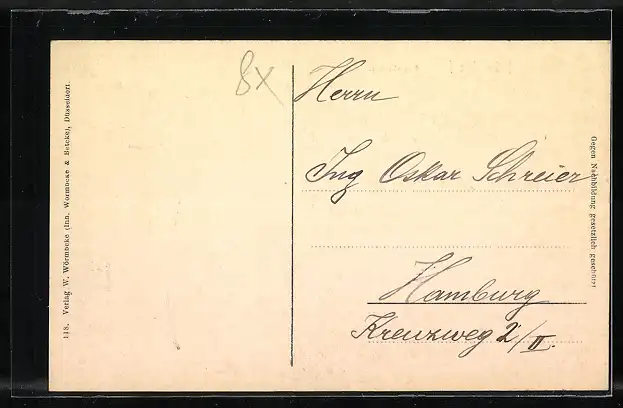 8x
Herrn
Ing Oskar Schreier
Hamburg
Kreuzweg 2/II.
118. Verlag W. Wörmbcke (Inh. Wörmbcke & Betcke), Düsseldorf.
Gegen Nachbildung gesetzlich geschützt